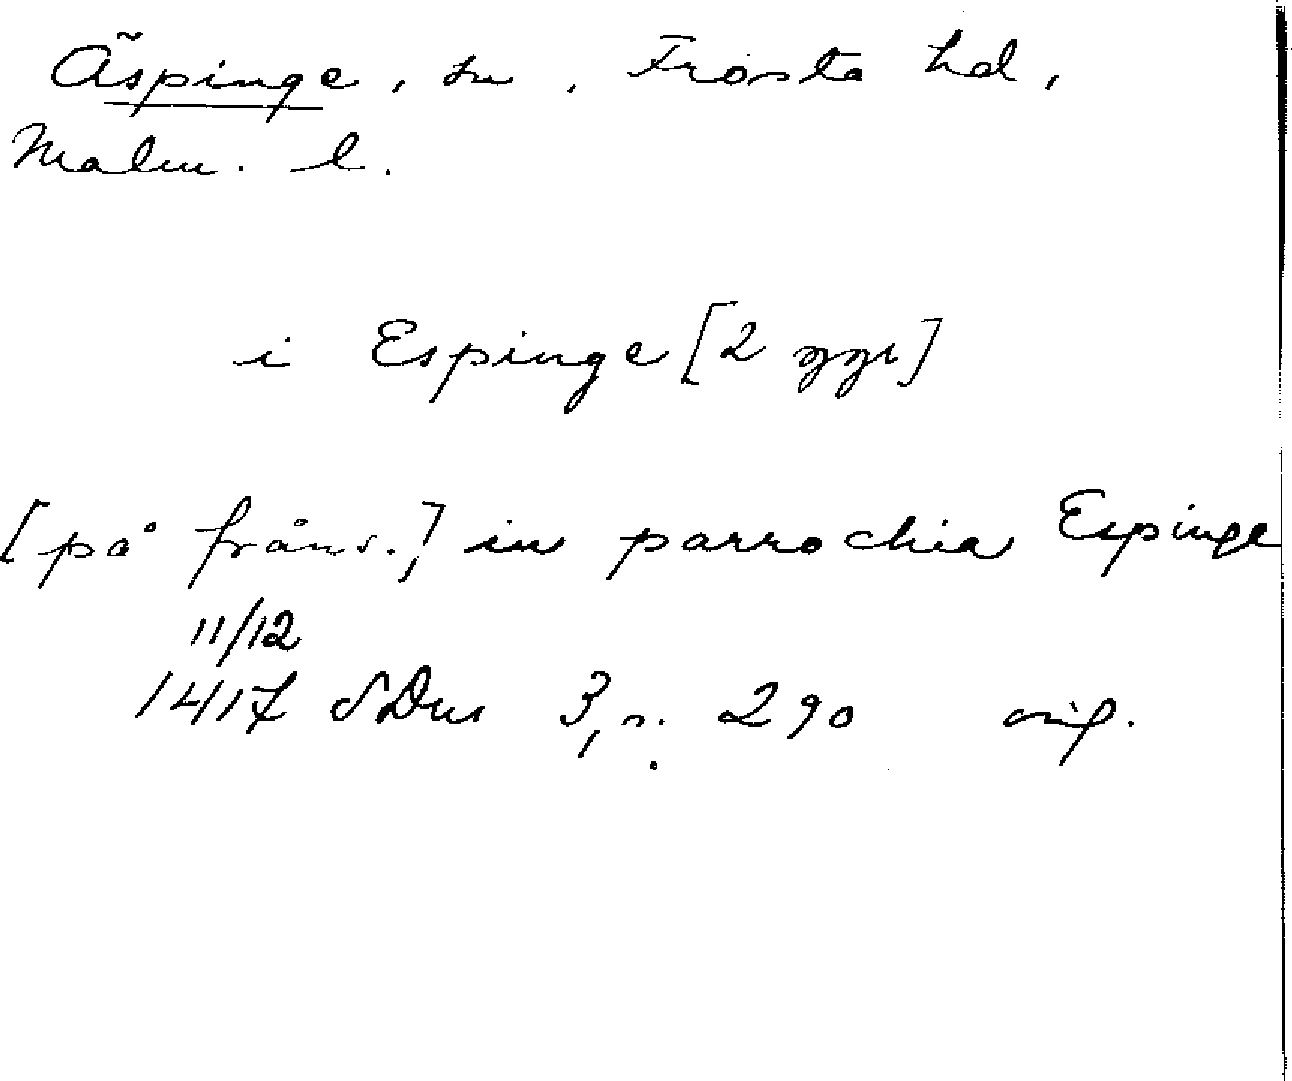 Äspinge, sn, Frosta hd,
Malm. l.
i Espinge [2 ggr]
[på fråns.] in parrochia Espinge
11/12
1417 SDns 3, s. 290 orig.